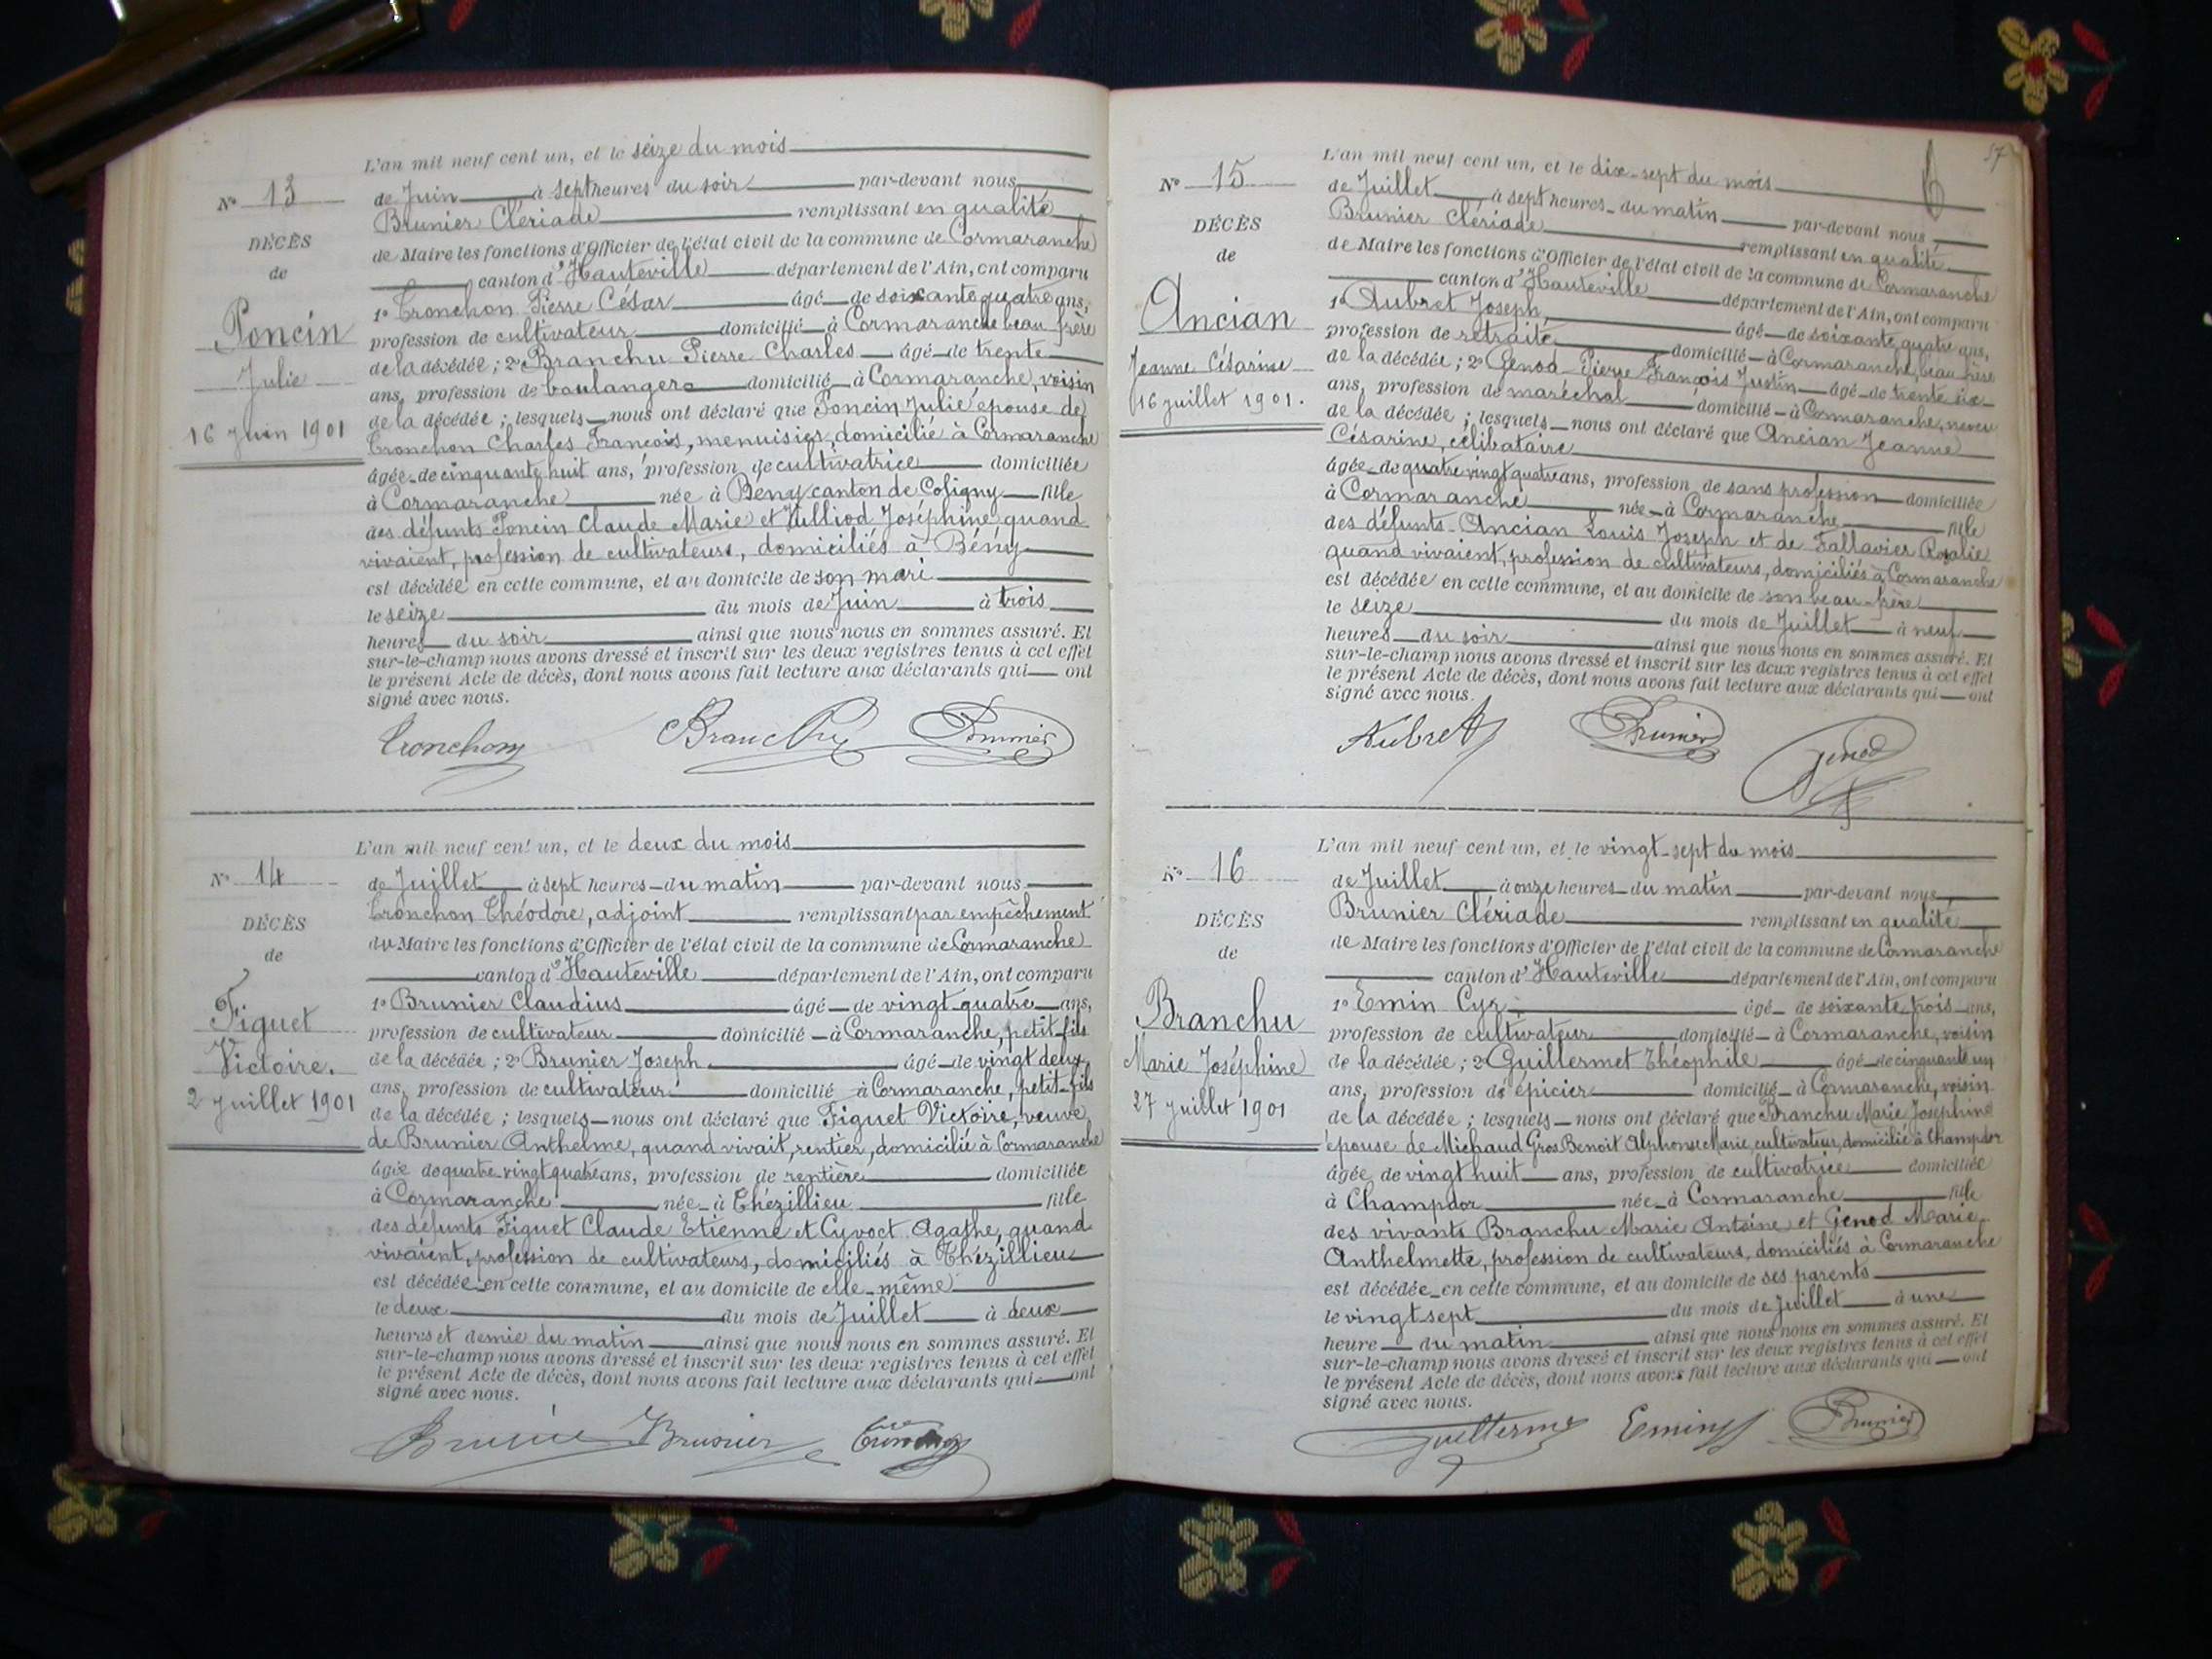 L'an mil neuf cent un, et le seize du mois
N° 13
de Juin à sept heures du soir par-devant nous
Brunier Clériade remplissant en qualité
DÉCÈS
de Maire les fonctions d'Officier de l'état civil de la commune de Cormaranche
de
canton d'Hauteville département de l'Ain, ont comparu
1° Tronchon Pierre César âgé de soixante quatre ans,
Poncin
profession de cultivateur domicilié à Cormaranche beau frère
de la décédée ; 2° Branchu Pierre Charles âgé de trente
Julie
ans, profession de boulanger domicilié à Cormaranche, voisin
de la décédée ; lesquels nous ont déclaré que Poncin Julie épouse de
16 Juin 1901
Tronchon Charles François, menuisier, domicilié à Cormaranche
âgée de cinquante huit ans, profession de cultivatrice domiciliée
à Cormaranche née à Bény canton de Coligny fille
des défunts Poncin Claude Marie et Vulliod Joséphine quand
vivaient, profession de cultivateurs, domiciliés à Bény
est décédée en cette commune, et au domicile de son mari
le seize du mois de Juin à trois
heures du soir ainsi que nous nous en sommes assuré. Et
sur-le-champ nous avons dressé et inscrit sur les deux registres tenus à cet effet
le présent Acte de décès, dont nous avons fait lecture aux déclarants qui ont
signé avec nous.
Tronchon Branchu Brunier
L'an mil neuf cent un, et le deux du mois
N° 14
de Juillet à sept heures du matin par-devant nous
Tronchon Théodore, adjoint remplissant par empêchement
DÉCÈS
du Maire les fonctions d'Officier de l'état civil de la commune de Cormaranche
de
canton d'Hauteville département de l'Ain, ont comparu
1° Brunier Claudius âgé de vingt quatre ans,
Figuet
profession de cultivateur domicilié à Cormaranche, petit-fils
Victoire.
de la décédée ; 2° Brunier Joseph âgé de vingt deux
ans, profession de cultivateur domicilié à Cormaranche, petit-fils
2 Juillet 1901
de la décédée ; lesquels nous ont déclaré que Figuet Victoire, veuve
de Brunier Anthelme, quand vivait, rentier, domicilié à Cormaranche
âgée de quatre-vingt quatre ans, profession de rentière domiciliée
à Cormaranche née à Thézillieu fille
des défunts Figuet Claude Etienne et Cyvoct Agathe, quand
vivaient, profession de cultivateurs, domiciliés à Thézillieu
est décédée en cette commune, et au domicile de elle-même
le deux du mois de Juillet à deux
heures et demie du matin ainsi que nous nous en sommes assuré. Et
sur-le-champ nous avons dressé et inscrit sur les deux registres tenus à cet effet
le présent Acte de décès, dont nous avons fait lecture aux déclarants qui ont
signé avec nous.
Brunier Brunier
57
L'an mil neuf cent un, et le dix-sept du mois
N° 15
de Juillet à sept heures du matin par-devant nous
Brunier Clériade remplissant en qualité
DÉCÈS
de Maire les fonctions d'Officier de l'état civil de la commune de Cormaranche
de
canton d'Hauteville département de l'Ain, ont comparu
Ancian
1° Aubret Joseph, âgé de soixante quatre ans,
profession de retraité domicilié à Cormaranche, beau frère
Jeanne Césarine
de la décédée ; 2° Genod Pierre François Justin âgé de trente six
16 juillet 1901.
ans, profession de maréchal domicilié à Cormaranche, neveu
de la décédée ; lesquels nous ont déclaré que Ancian Jeanne
Césarine, célibataire
âgée de quatre vingt quatre ans, profession de sans profession domiciliée
à Cormaranche née à Cormaranche fille
des défunts Ancian Louis Joseph et de Fallavier Rosalie
quand vivaient, profession de cultivateurs, domiciliés à Cormaranche
est décédée en cette commune, et au domicile de son beau-frère
le seize du mois de Juillet à neuf
heures du soir ainsi que nous nous en sommes assuré. Et
sur-le-champ nous avons dressé et inscrit sur les deux registres tenus à cet effet
le présent Acte de décès, dont nous avons fait lecture aux déclarants qui ont
signé avec nous.
Aubret Brunier Genod
L'an mil neuf cent un, et le vingt-sept du mois
N° 16
de Juillet à onze heures du matin par-devant nous
Brunier Clériade remplissant en qualité
DÉCÈS
de Maire les fonctions d'Officier de l'état civil de la commune de Cormaranche
de
canton d'Hauteville département de l'Ain, ont comparu
1° Emin Cyr âgé de soixante trois ans,
Branchu
profession de cultivateur domicilié à Cormaranche, voisin
Marie Joséphine
de la décédée ; 2° Guillermet Théophile âgé de cinquante un
ans, profession de épicier domicilié à Cormaranche, voisin
27 Juillet 1901
de la décédée ; lesquels nous ont déclaré que Branchu Marie Joséphine
épouse de Michaud Gros Benoit Alphonse Marie, cultivateur, domicilié à Champdor
âgée de vingt huit ans, profession de cultivatrice domiciliée
à Champdor née à Cormaranche fille
des vivants Branchu Marie Antoine et Genod Marie
Anthelmette, profession de cultivateurs, domiciliés à Cormaranche
est décédée en cette commune, et au domicile de ses parents
le vingt sept du mois de Juillet à une
heure du matin ainsi que nous nous en sommes assuré. Et
sur-le-champ nous avons dressé et inscrit sur les deux registres tenus à cet effet
le présent Acte de décès, dont nous avons fait lecture aux déclarants qui ont
signé avec nous.
Guillermet Emin Brunier